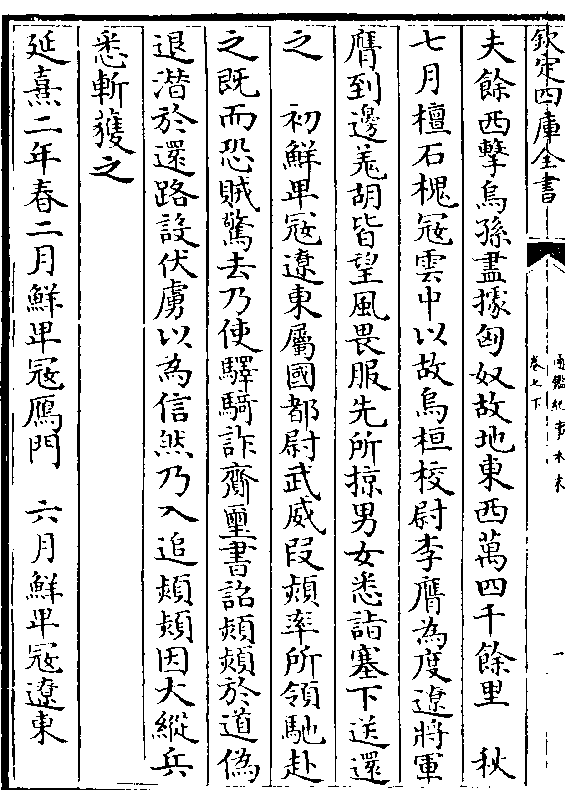 欽定四庫全書
通鑑紀事本末
卷七下
一
夫餘西擊烏孫盡據匈奴故地東西萬四千餘里　秋
七月檀石槐寇雲中以故烏桓校尉李膺為度遼將軍
膺到邊羗胡皆望風畏服先所掠男女悉詣塞下送還
之　初鮮卑寇遼東屬國都尉武威段熲率所領馳赴
之既而恐賊驚去乃使驛騎詐齎璽書詔熲熲於道偽
退潛於還路設伏虜以為信然乃入追熲熲因大縱兵
悉斬獲之
延熹二年春二月鮮卑寇鴈門　六月鮮卑寇遼東